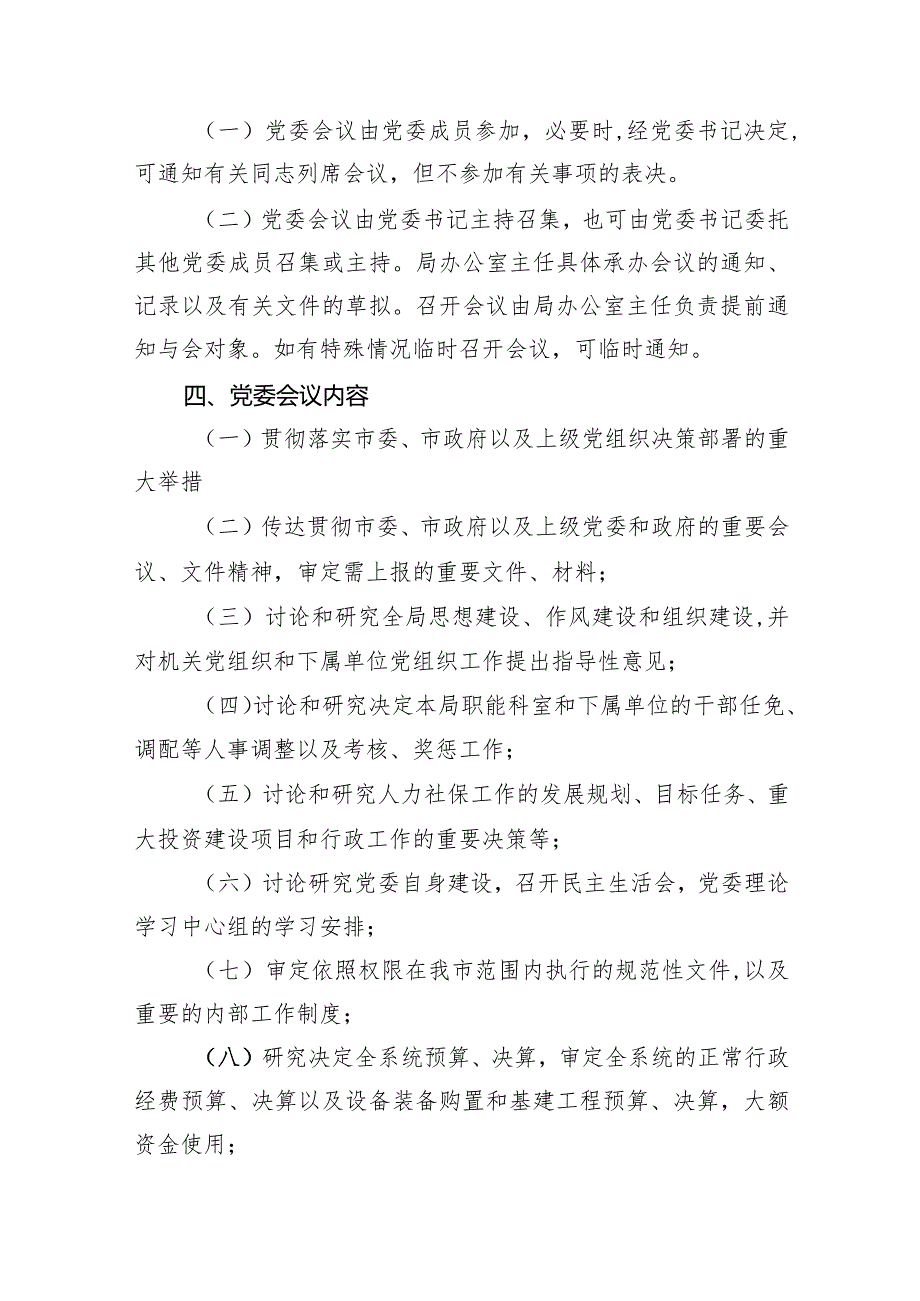 （一）党委会议由党委成员参加，必要时,经党委书记决定,
可通知有关同志列席会议，但不参加有关事项的表决。
（二）党委会议由党委书记主持召集，也可由党委书记委托
其他党委成员召集或主持。局办公室主任具体承办会议的通知、
记录以及有关文件的草拟。召开会议由局办公室主任负责提前通
知与会对象。如有特殊情况临时召开会议，可临时通知。
四、党委会议内容
（一）贯彻落实市委、市政府以及上级党组织决策部署的重
大举措
（二）传达贯彻市委、市政府以及上级党委和政府的重要会
议、文件精神，审定需上报的重要文件、材料；
（三）讨论和研究全局思想建设、作风建设和组织建设,并
对机关党组织和下属单位党组织工作提出指导性意见；
（四)讨论和研究决定本局职能科室和下属单位的干部任免、
调配等人事调整以及考核、奖惩工作；
（五）讨论和研究人力社保工作的发展规划、目标任务、重
大投资建设项目和行政工作的重要决策等；
（六）讨论研究党委自身建设，召开民主生活会，党委理论
学习中心组的学习安排；
（七）审定依照权限在我市范围内执行的规范性文件,以及
重要的内部工作制度；
（八）研究决定全系统预算、决算，审定全系统的正常行政
经费预算、决算以及设备装备购置和基建工程预算、决算，大额
资金使用；